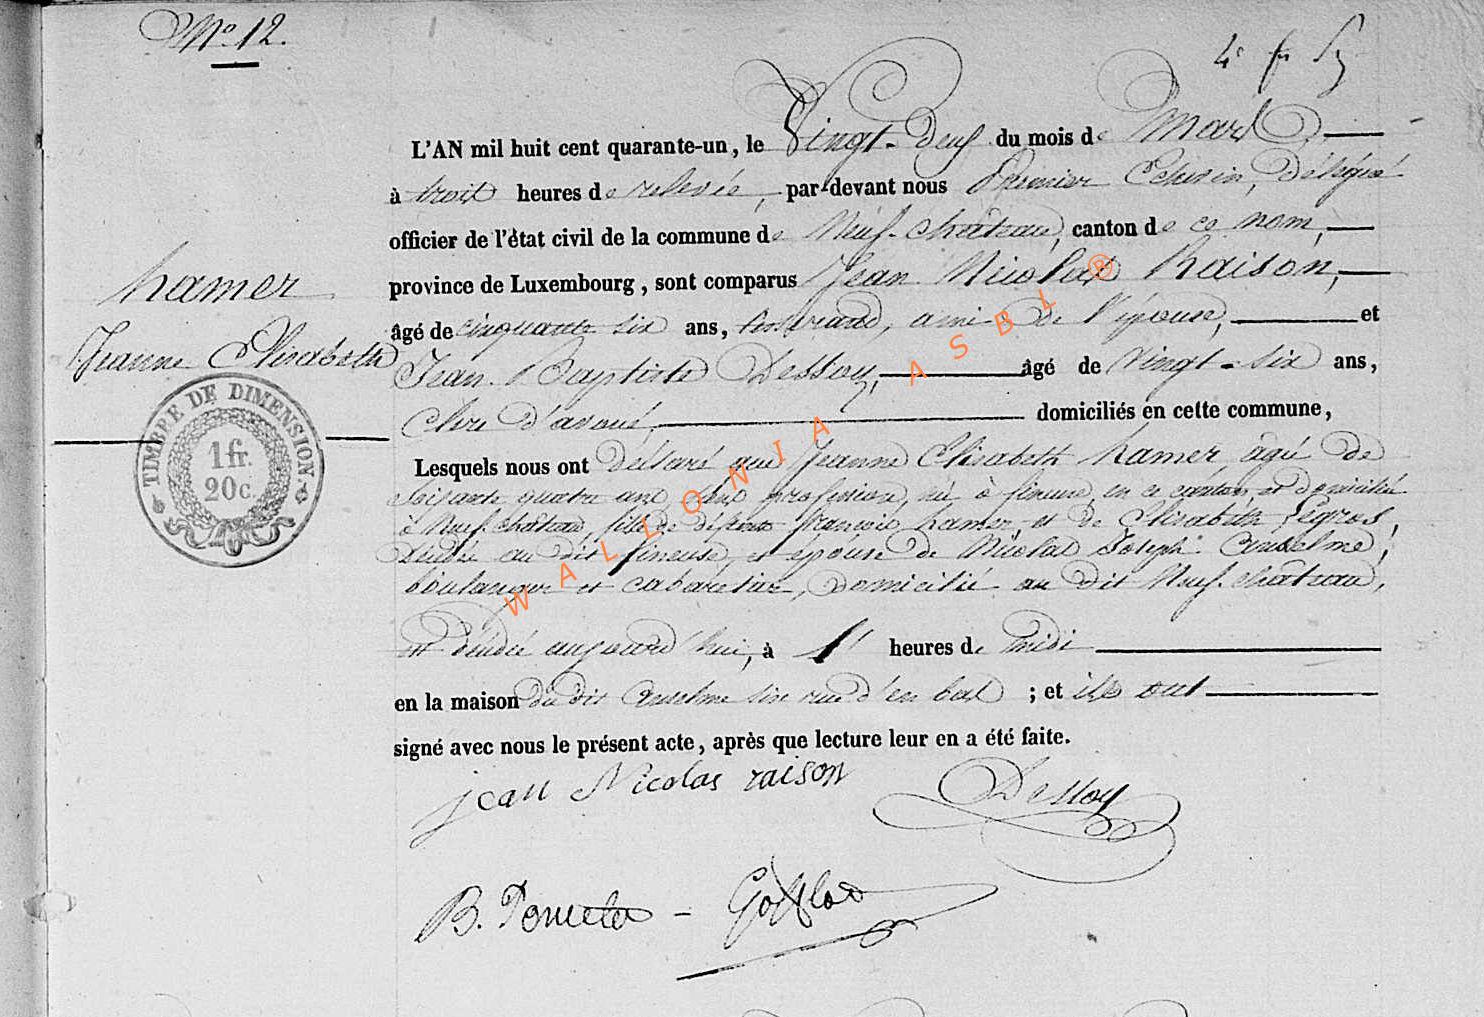 N° 12.
L'AN mil huit cent quarante-un, le Vingt-deux du mois de Mars
à trois heures de relevée, par-devant nous Premier Echevin, Délégué
officier de l'état civil de la commune de Neuf-château, canton de ce nom,
province de Luxembourg, sont comparus Jean Nicolas Raison,
âgé de cinquante six ans, tisserand, ami de l'épouse, et
Jean Baptiste Dessoy, âgé de Vingt-six ans,
clerc d'avoué, domiciliés en cette commune,
hamer
Jeanne Elisabeth
TIMBRE DE DIMENSION
1 fr.
20 c.
Lesquels nous ont déclaré que Jeanne Elisabeth hamer âgée de
soixante quatre ans, sans profession, née à fineuse, en ce canton, et domiciliée
à Neuf-château, fille de défunts françois hamer, et de Elisabeth Legros,
au dit fineuse, et épouse de Nicolas Joseph Anselme,
boulanger et cabaretier, domicilié au dit Neuf-château,
est décédée aujourd'hui, à heures de midi
en la maison du dit Anselme sise rue d'en bas ; et ils ont
signé avec nous le présent acte, après que lecture leur en a été faite.
jean Nicolas raison Dessoy
B.
WALLONIA ASBL ®